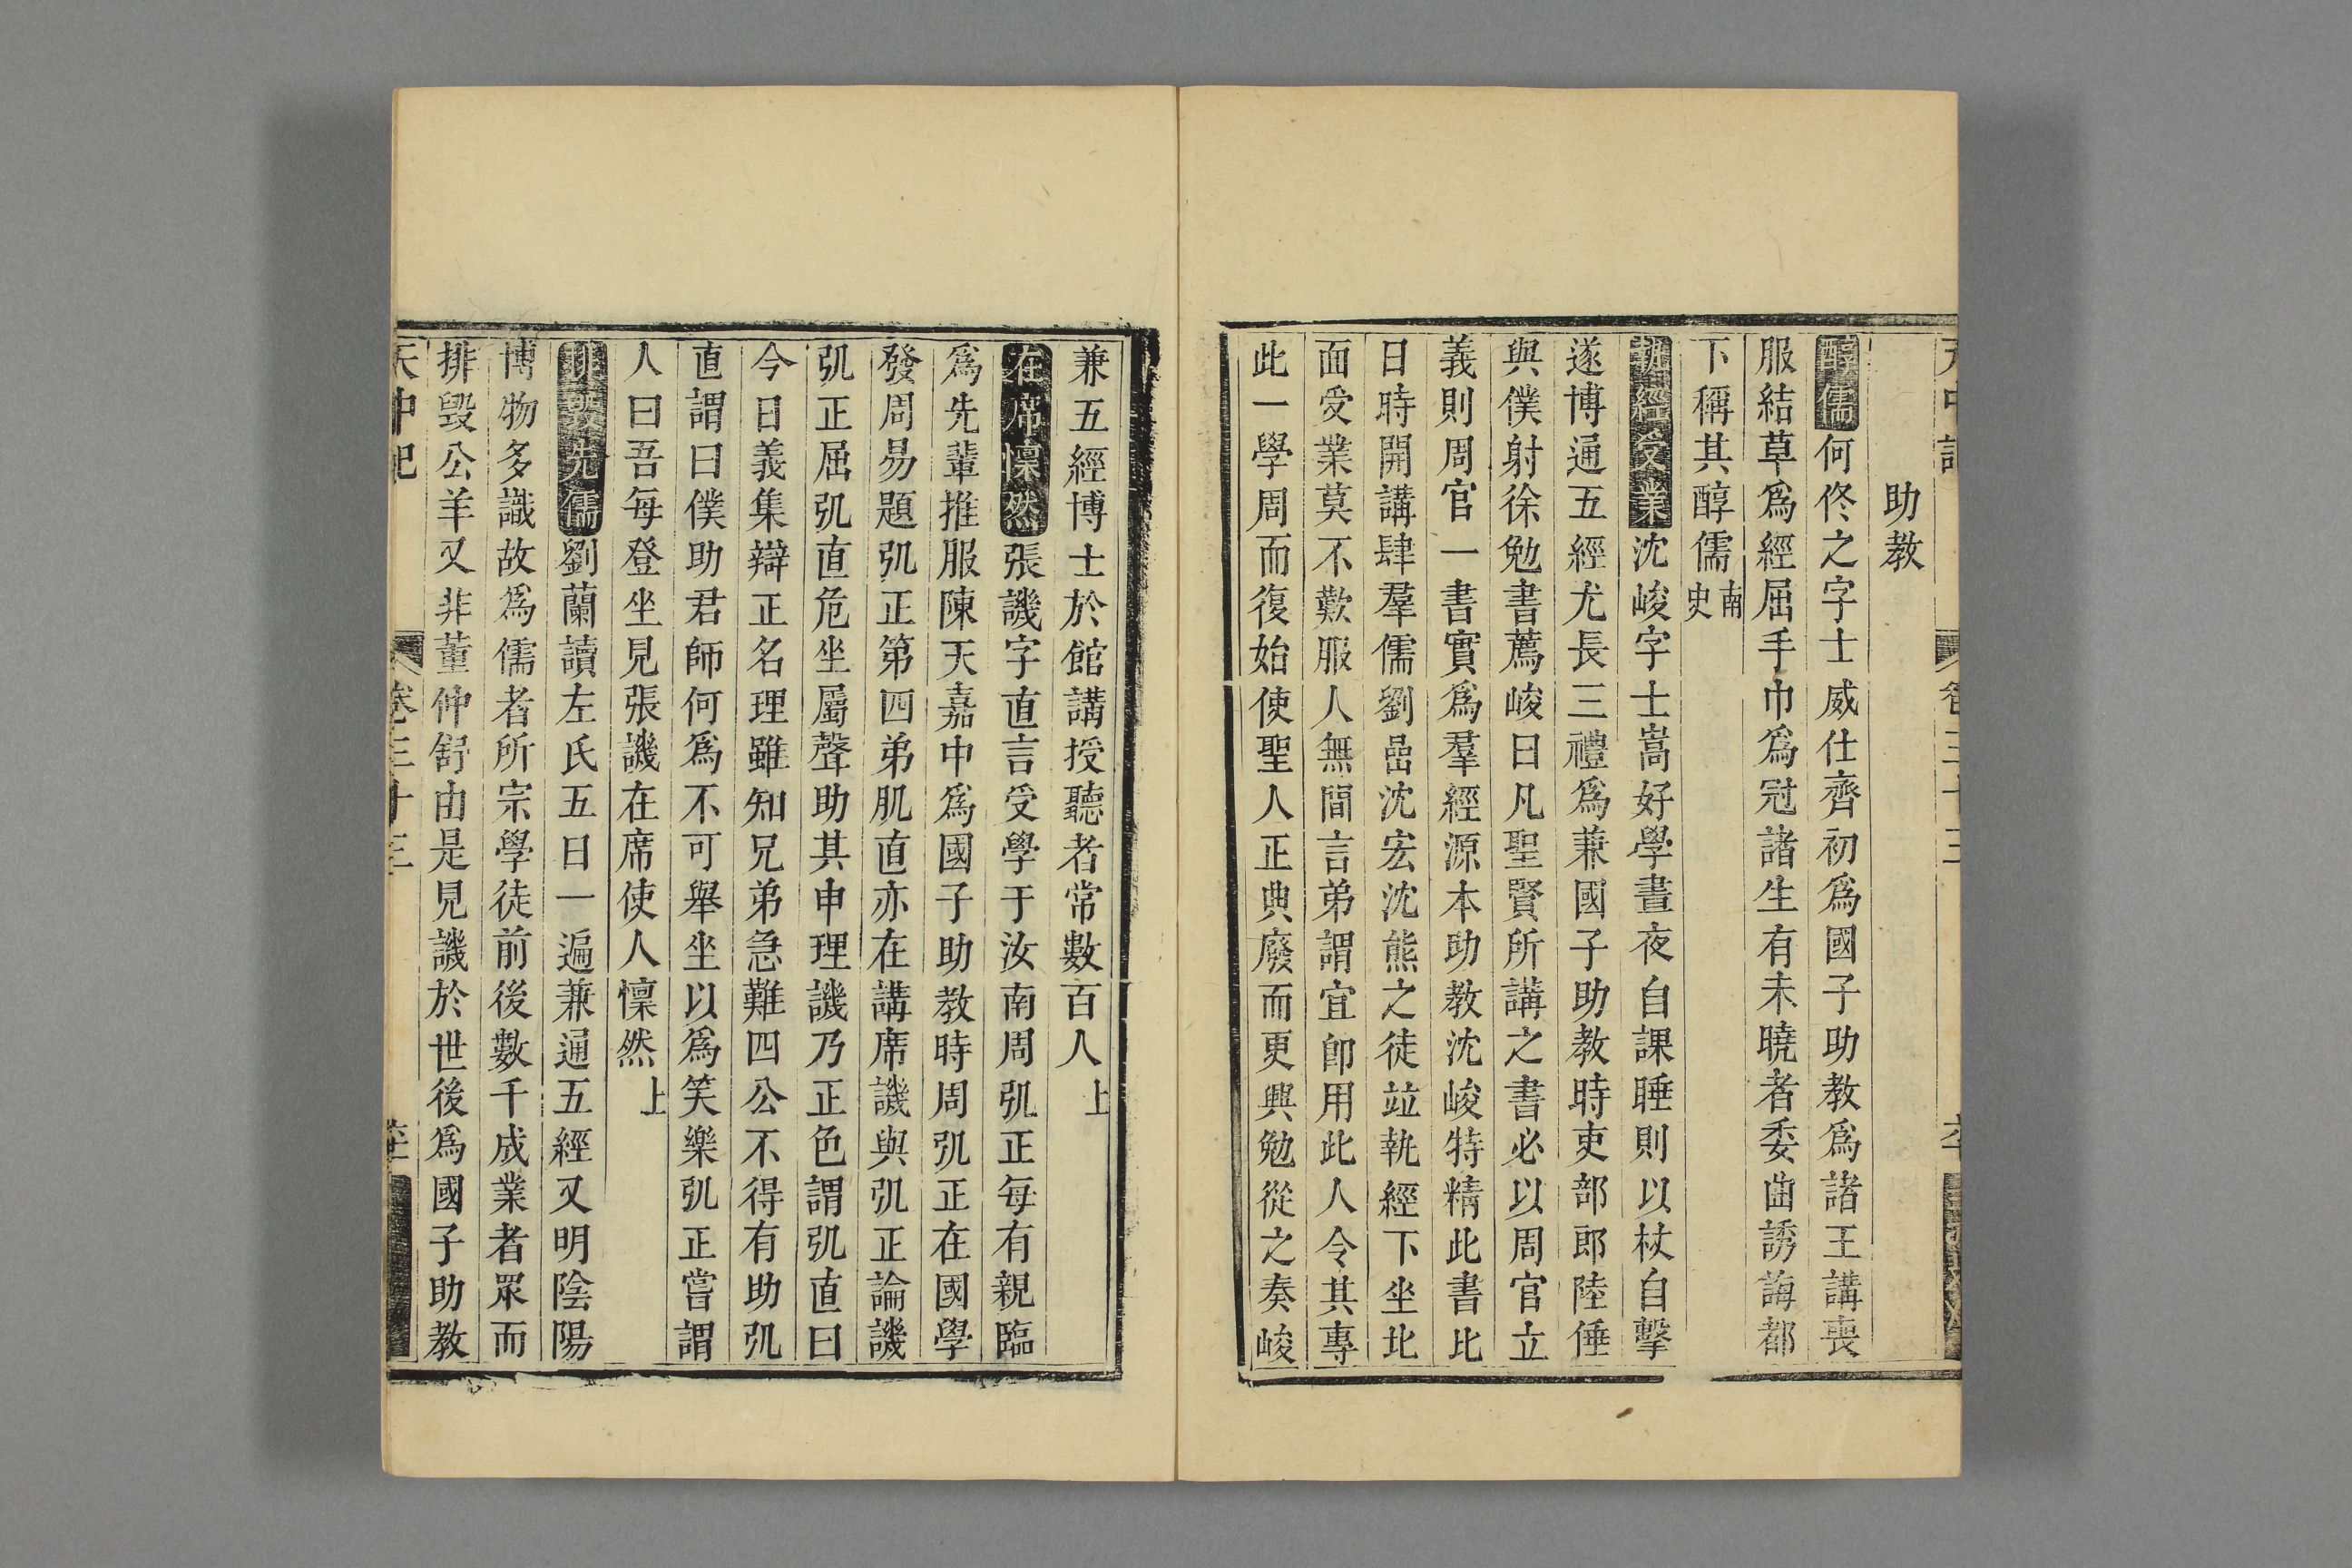 助教
醇儒何佟之字士威仕齊初爲國子助教爲諸王講喪
服結草爲經屈手巾爲冠諸生有未曉者委曲誘誨都
下稱其醇儒南史
執經受業沈峻字士嵩好學晝夜自課睡則以杖自擊
遂博通五經尤長三禮爲兼國子助教時吏部郎陸倕
與僕射徐勉書薦峻曰凡聖賢所講之書必以周官立
義則周官一書實爲羣經源本助教沈峻特精此書比
日時開講肆羣儒劉嵒沈宏沈熊之徒竝執經下坐北
面受業莫不歎服人無間言弟謂宜卽用此人令其專
此一學周而復始使聖人正典廢而更興勉從之奏峻
兼五經博士於館講授聽者常數百人上
在席懍然張譏字直言受學于汝南周弘正每有親臨
爲先輩推服陳天嘉中爲國子助教時周弘正在國學
發周易題弘正第四弟肌直亦在講席譏與弘正論譏
弘正屈弘直危坐屬聲助其申理譏乃正色謂弘直曰
今日義集辯正名理雖知兄弟急難四公不得有助弘
直謂曰僕助君師何爲不可舉坐以爲笑樂弘正嘗謂
人曰吾每登坐見張譏在席使人懍然上
排毀先儒劉蘭讀左氏五日一遍兼通五經又明陰陽
博物多識故爲儒者所宗學徒前後數千成業者眾而
排毀公羊又非董仲舒由是見譏於世後爲國子助教
天中記 卷三十三